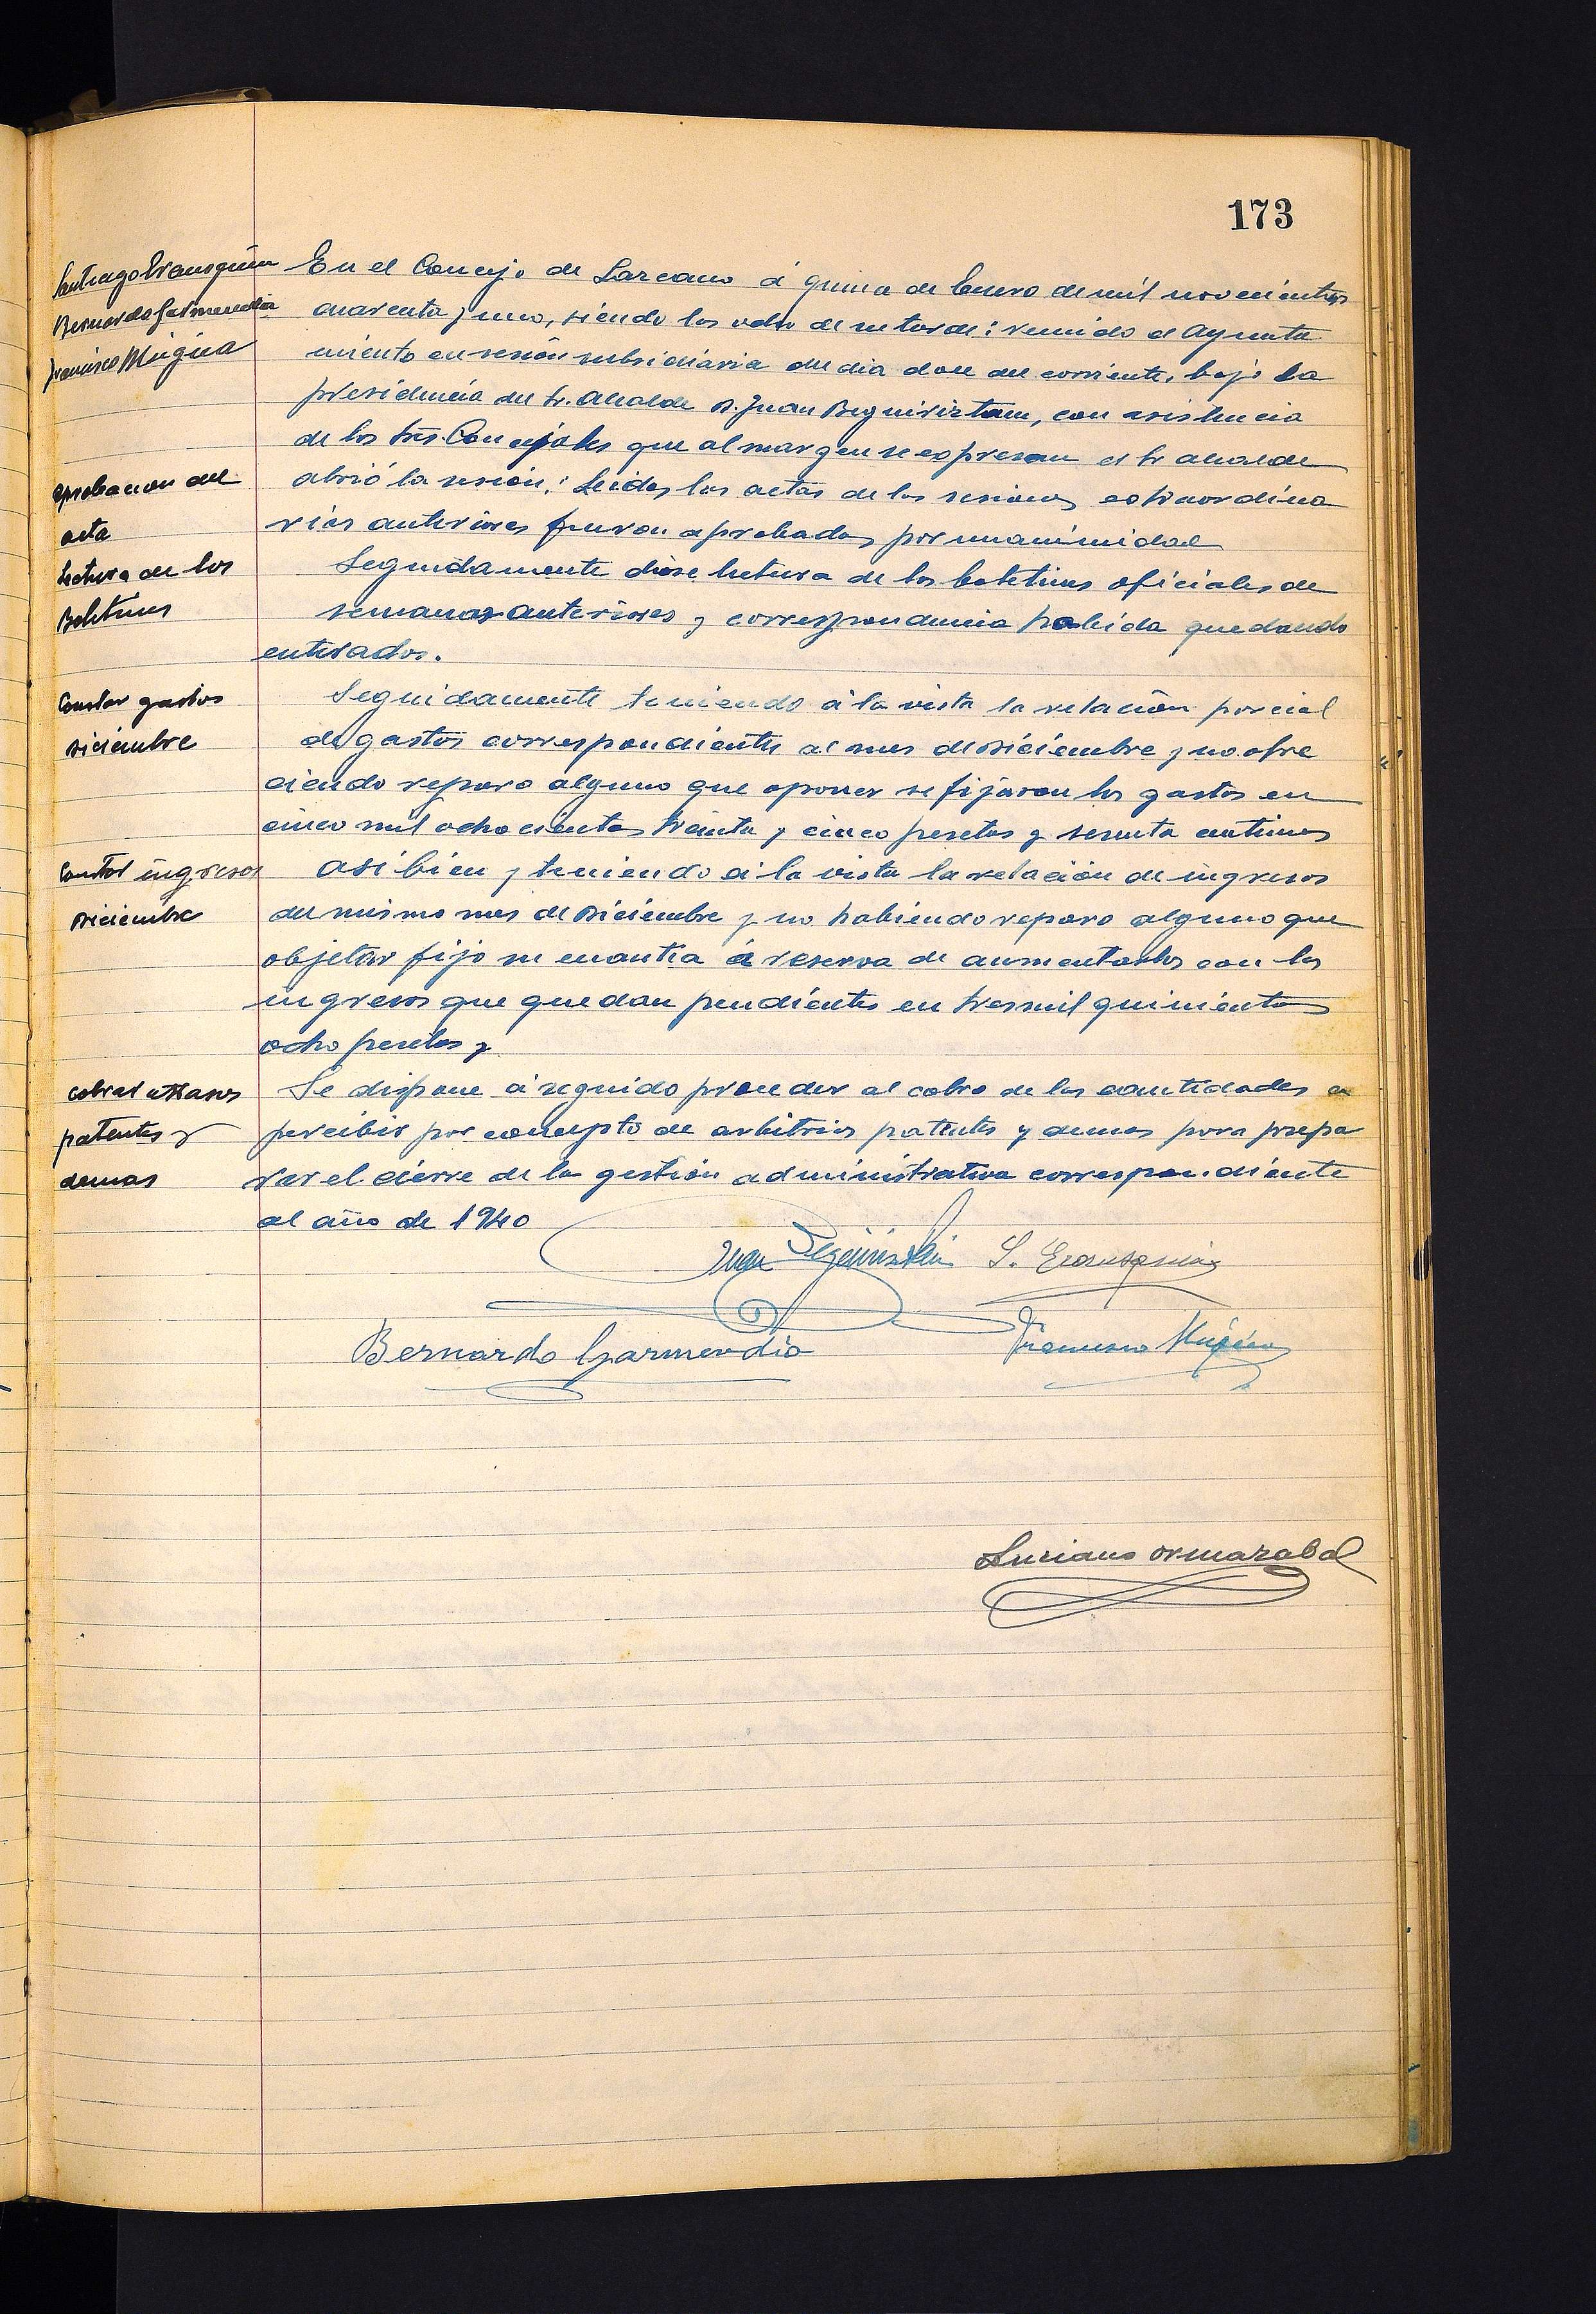 173
Santiago Eransquin
Bernardo Garmendia
Francisco Mugica
En el Concejo de Lazcano á quince de Enero de mil novecientos
cuarenta y uno, siendo las ocho de su tarde: reunido el Ayunta
miento en sesión subsidiaria del dia doce del corriente, bajo la
presidencia del Sr. Alcalde D. Juan Beguiristain, con asistencia
de los Srs. Concejales que al margen se expresan el Sr alcalde
abrió la sesión: Leidas las actas de las sesiones extraordina
rias anteriores fueron aprobadas por unanimidad
Aprobacion del
acta
Lectura de los
Boletines
Seguidamente dióse lectura de los boletines oficiales de
semanas anteriores y correspondencia habida quedando
enterados.
Constar gastos
Diciembre
Seguidamente teniendo á la vista la relación parcial
de gastos correspondientes al mes de Diciembre y no ofre
ciendo reparo alguno que oponer se fijaron los gastos en
cinco mil ochocientas treinta y cinco pesetas y sesenta centimos
Constar ingresos
Diciembre
Asi bien y teniendo á la vista la relación de ingresos
del mismo mes de Diciembre y no habiendo reparo alguno que
objetar fijo su cuantía á reserva de aumentarlos con los
ingresos que quedan pendientes en tres mil quinientas
ocho pesetas y
cobrar atrasos
patentes y
demas
Se dispone á seguido proceder al cobro de las cantidades a
percibir por concepto de arbitrios patentes y demas para prepa
rar el cierre de la gestión administrativa correspondiente
al año de 1940
Juan Beguiristain S. Eransquin
Bernardo Garmendia Francisco Mugica
Luciano Ormazabal